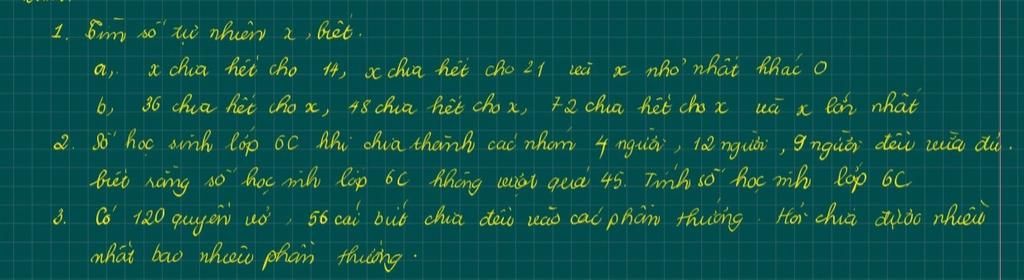 1. Tìm số tự nhiên x, biết.
a, x chia hết cho 14, x chia hết cho 21 và x nhỏ nhất khác 0
b, 36 chia hết cho x, 48 chia hết cho x, 72 chia hết cho x và x lớn nhất
2. Số học sinh lớp 6C khi chia thành các nhóm 4 người, 12 người, 9 người đều vừa đủ.
biết rằng số học sinh lớp 6C không vượt quá 45. Tính số học sinh lớp 6C
3. Có 120 quyển vở, 56 cái bút chia đều vào các phần thưởng. Hỏi chia được nhiều
nhất bao nhiêu phần thưởng.